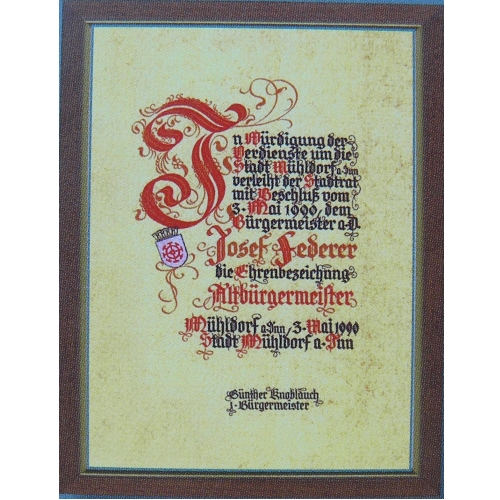 In Würdigung der
Verdienste um die
Stadt Mühldorf a. Inn
verleiht der Stadtrat
mit Beschluß vom
3. Mai 1990, dem
Bürgermeister a.D.
Josef Federer
die Ehrenbezeichung
Altbürgermeister
Mühldorf a. Inn, 3. Mai 1990
Stadt Mühldorf a. Inn
Günther Knoblauch
1. Bürgermeister